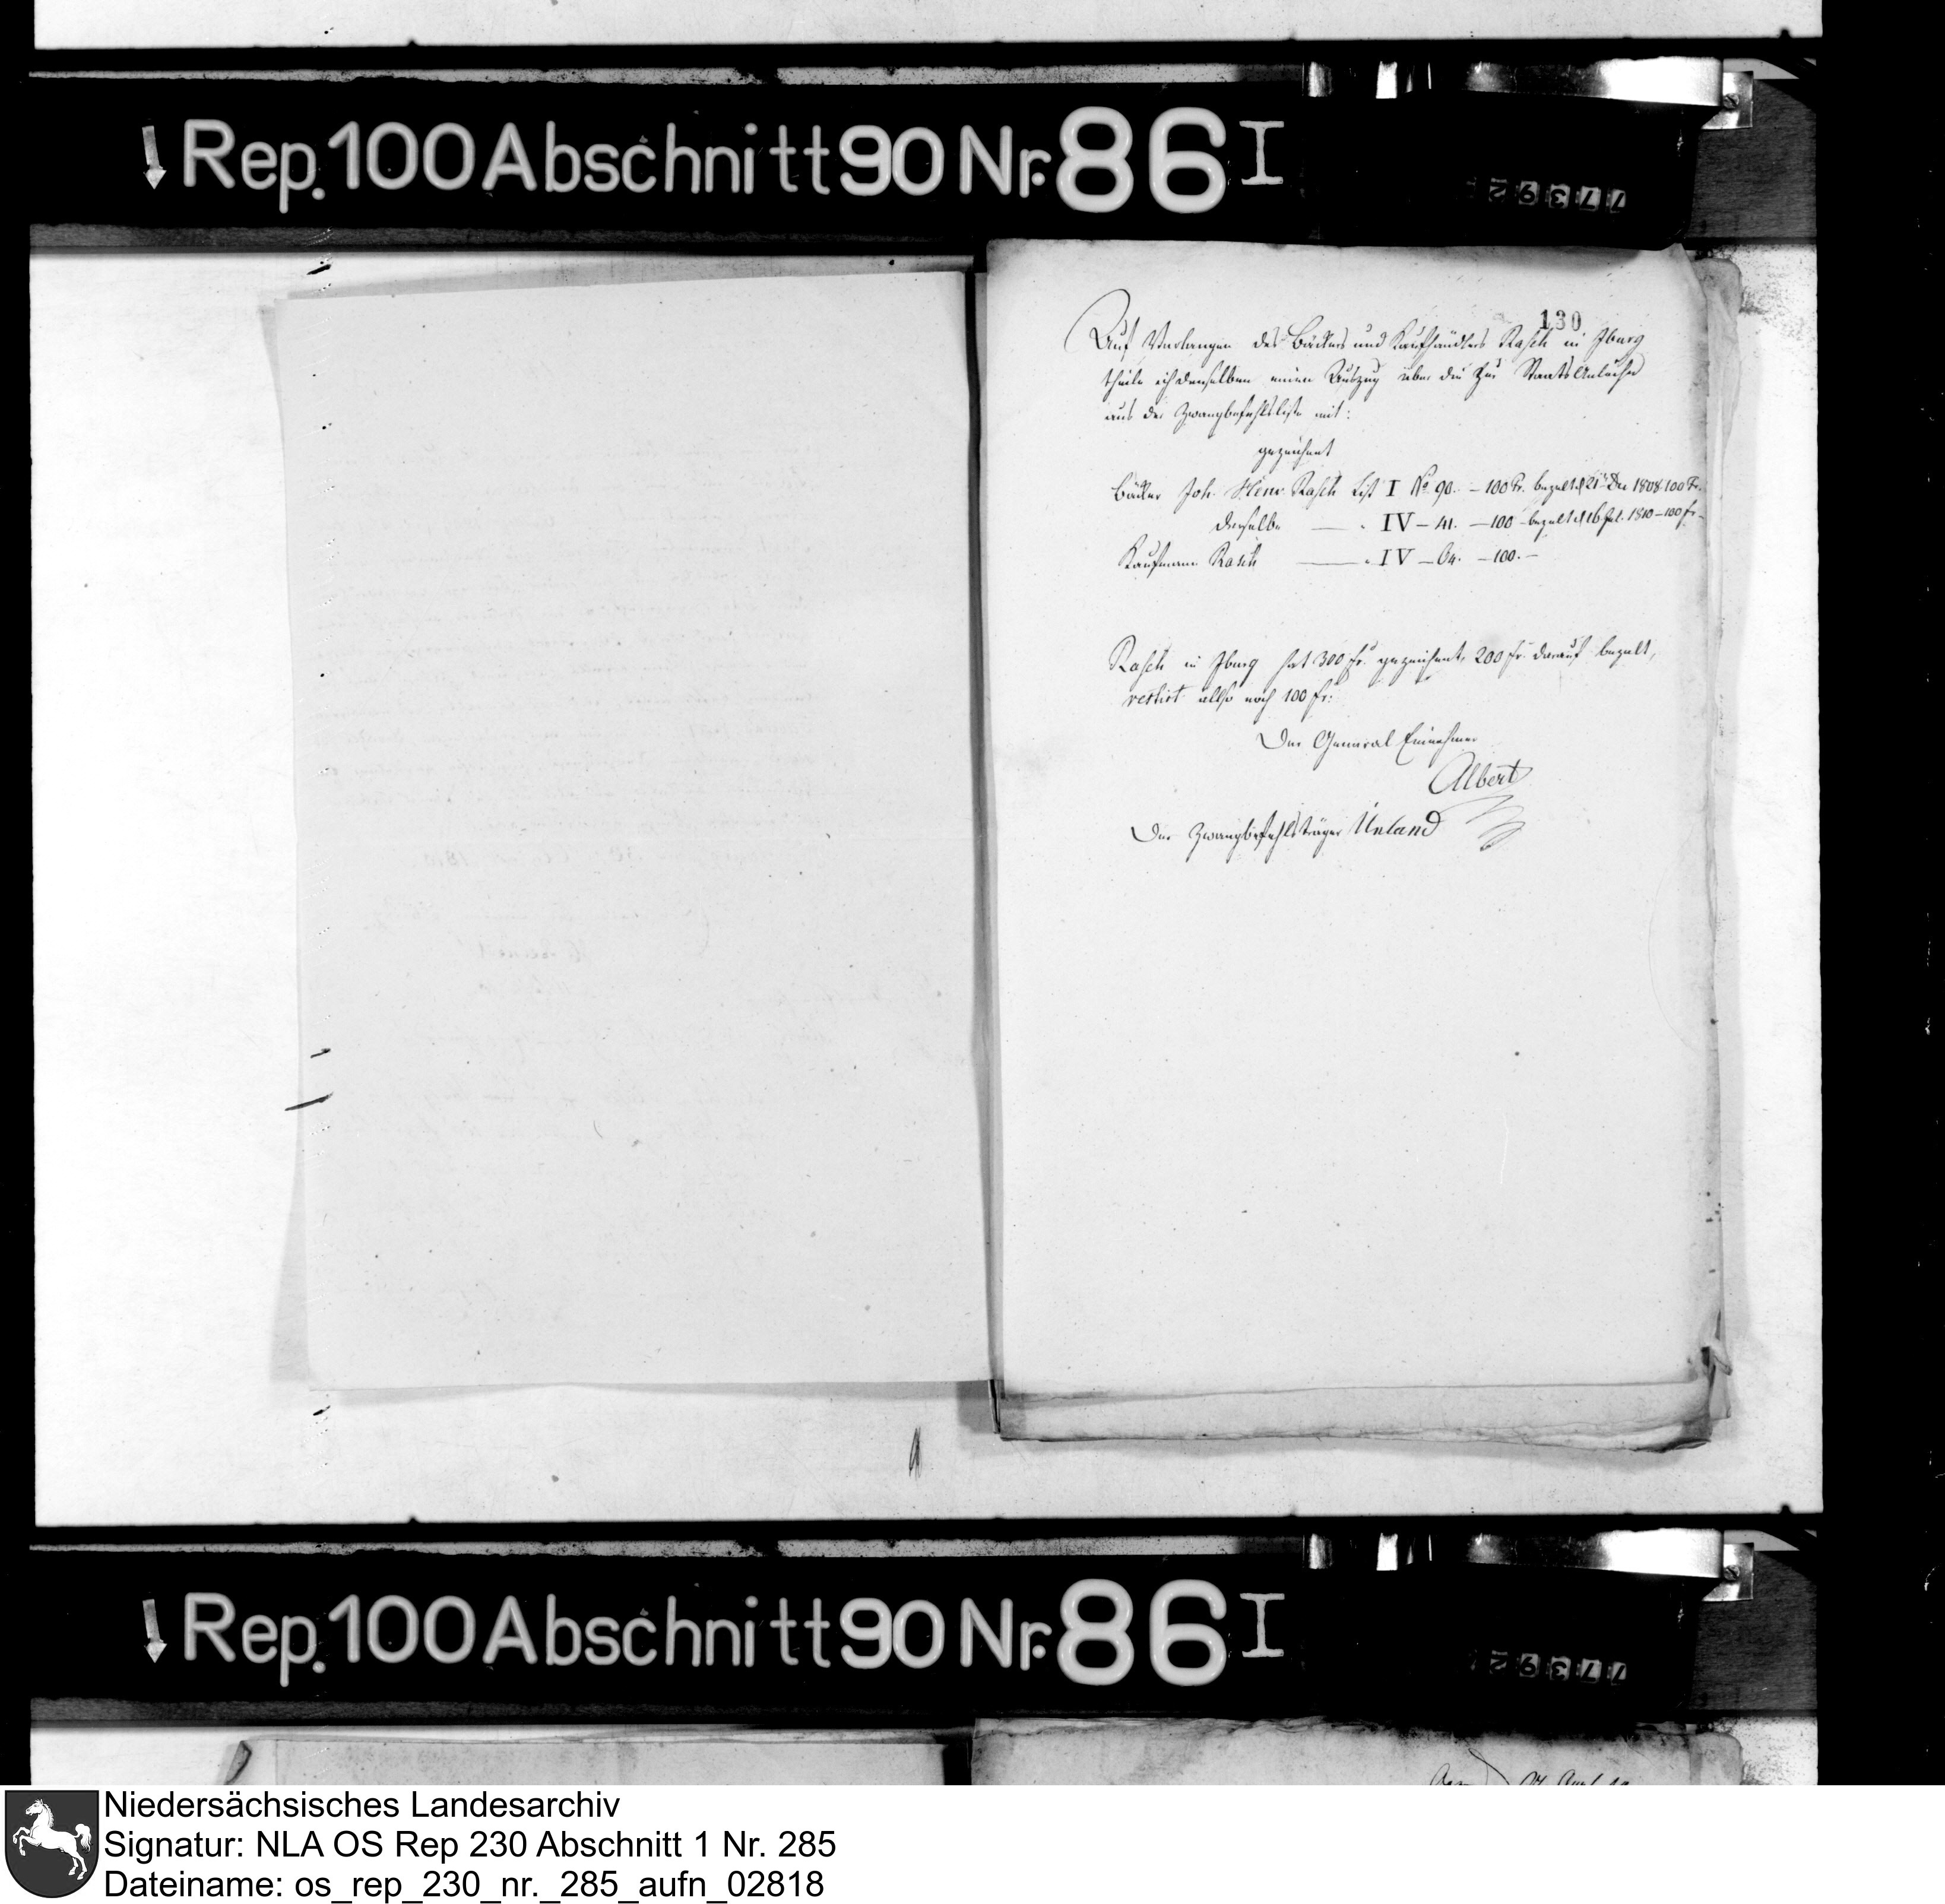 Rep. 100 Abschnitt 90 Nr. 86 I
77392
130
Auf Verlangen des Bäckers und Kaufhändlers Rasch in Iburg
theile ich denselben einen Auszug über die zur Staats Anleihe
aus der Zwangbefehlsliste mit:
gezeichnet
Bäcker Joh. Henr. Rasch List I No 90. – 100 Fr. bezalt d 21 Dec 1808 100 Fr.
derselbe — " IV – 41. – 100 – bezalt d 16 Jul. 1810 – 100 fr –
Kaufmann Rasch — " IV – 64. – 100. –
Rasch in Iburg hat 300 fr. gezeichnet, 200 fr. darauf bezalt,
restirt also noch 100 fr.
Der General Einnehmer
Albert
Der Zwangbefehlsträger Unland
Rep. 100 Abschnitt 90 Nr. 86 I
77392
Niedersächsisches Landesarchiv
Signatur: NLA OS Rep 230 Abschnitt 1 Nr. 285
Dateiname: os_rep_230_nr._285_aufn_02818